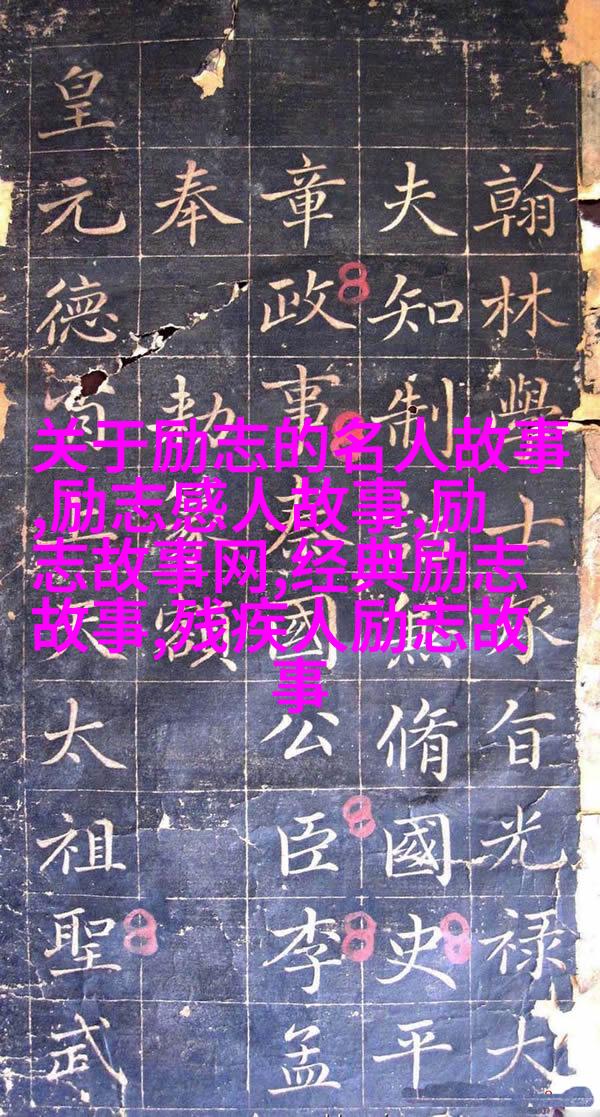 关于励志的名人故事
,励志感人故事,励
志故事网,经典励志
故事,残疾人励志故
事
翰林學士承旨光禄大
夫知制脩國史平
章政事國公臣李孟
奉額
皇元德太祖聖武